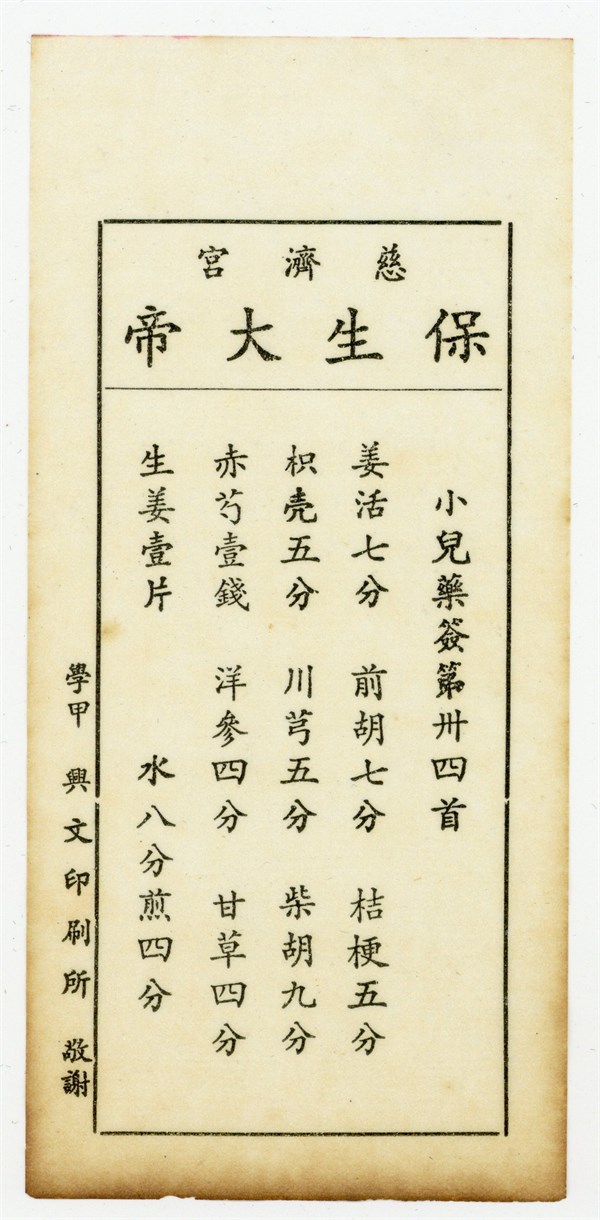 慈濟宮
保生大帝
小兒藥簽第卅四首
姜活七分 前胡七分 桔梗五分
枳壳五分 川芎五分 柴胡九分
赤芍壹錢 洋參四分 甘草四分
生姜壹片 水八分煎四分
學甲 興文印刷所 敬謝